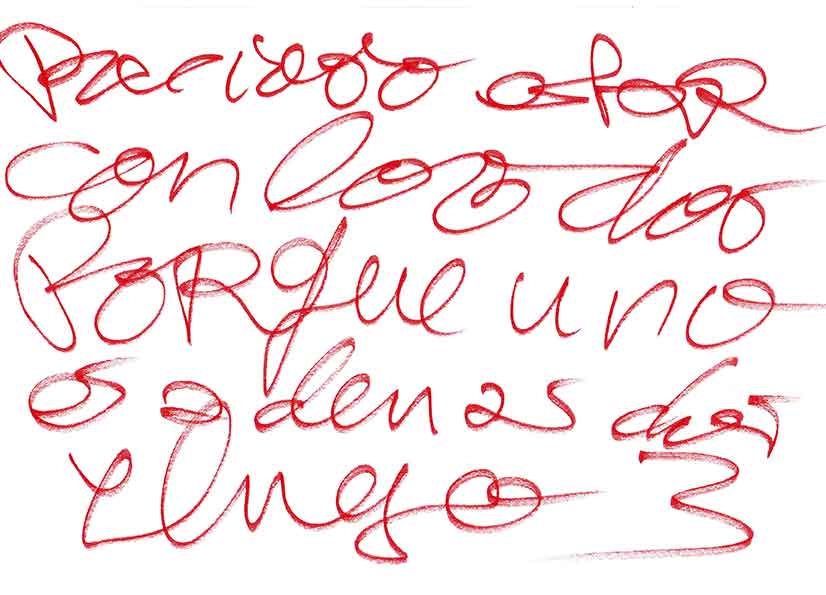 Precioso estar
con los dos
PORque uno
es ademas dos
y luego 3